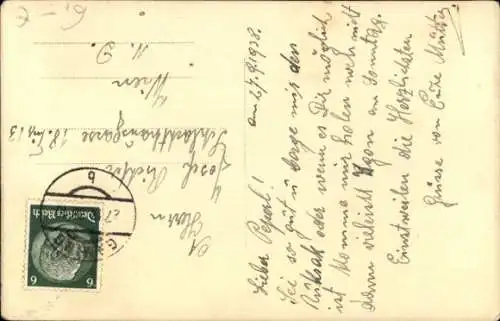 6,-
am 27.9.1938.
Lieber Peperl!
Sei so gut u. borge mir den
Rucksak oder wenn es Dir möglich
ist komme mir holen noch nicht
dann vielleicht Egon am Sonntag.
Einstweilen die Herzlichsten
Grüsse von Eure Mutter
A
Herrn
Josef Richter
Schlachthausgasse 18.
Wien
N. D.
Deutsches Reich
6 6
b